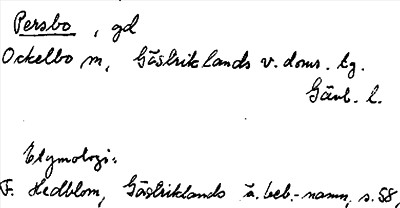 Persbo, gd
Ockelbo sn, Gästriklands v. doms. tg.
Gävl. l.
Etymologi:
F. Hedblom, Gästriklands ä. beb.-namn, s. 58,